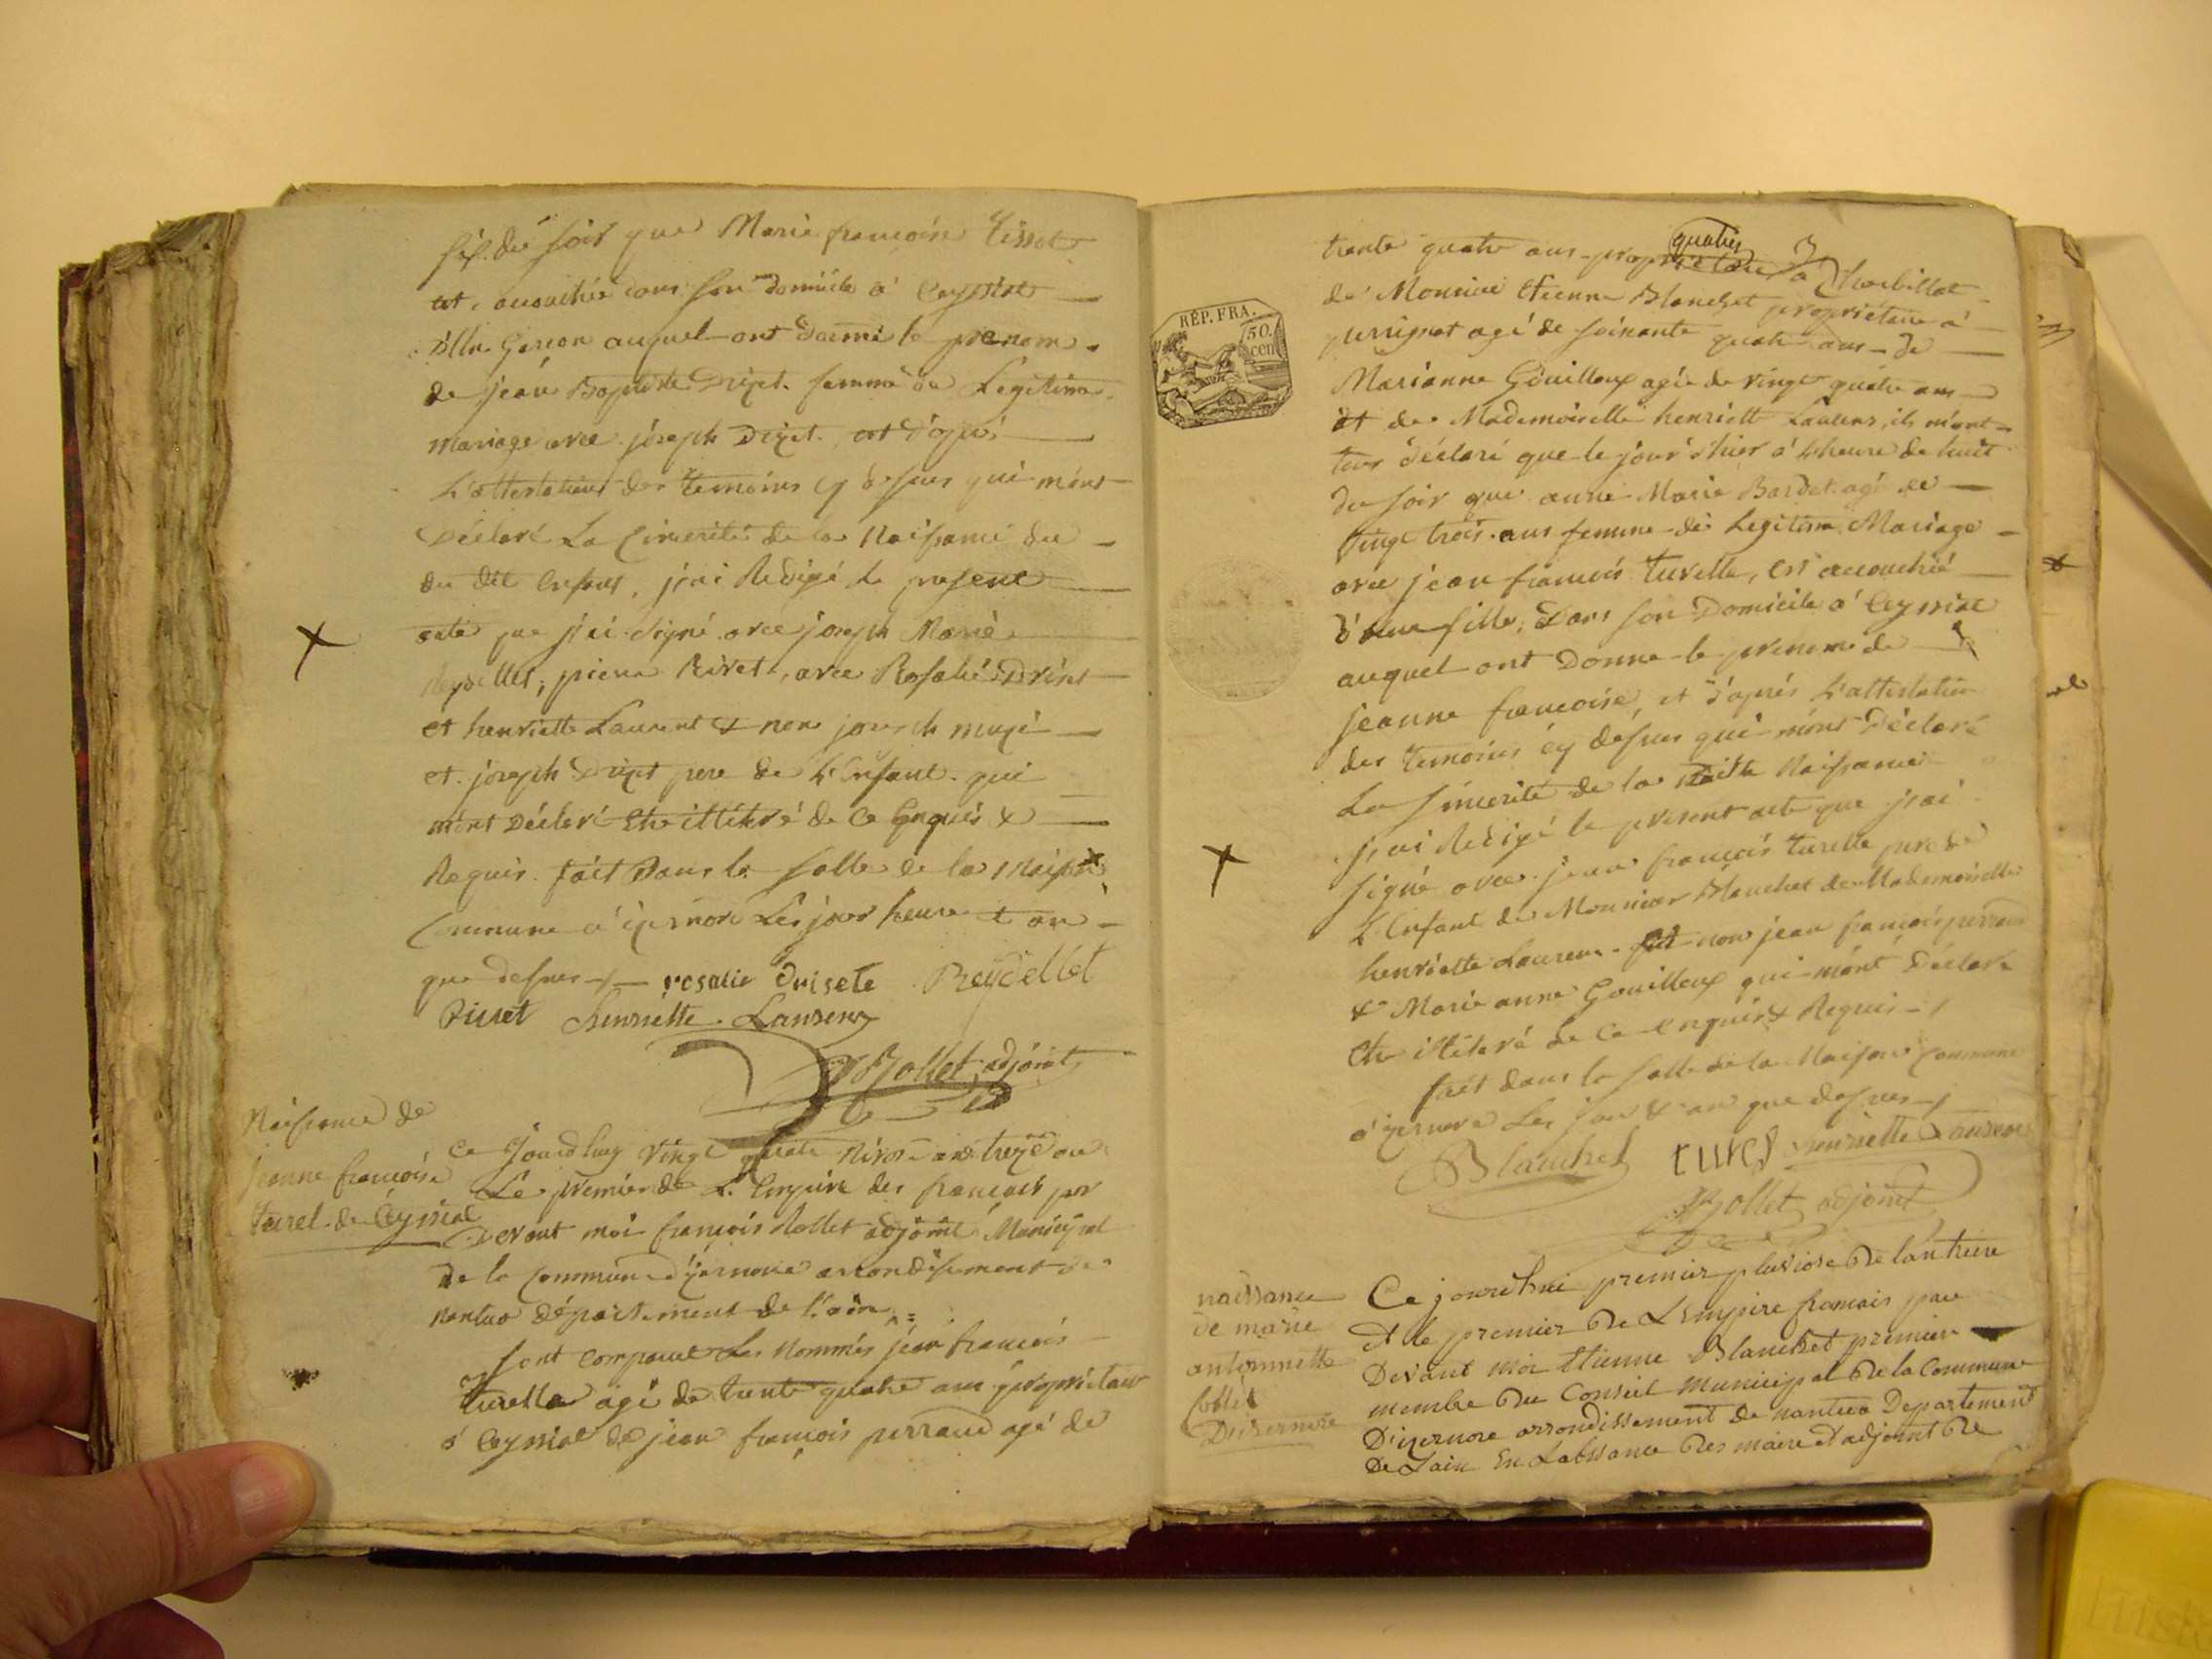 six du soir que Marie françoise tissot
est, accouchée dans son domicile à Ceyssiat
d'un Garcon auquel ont donné le prenom
de jean Baptiste Drizet. femme de Legitime
mariage avec joseph Drizet. et d'après
L'attestation des temoins cy dessus qui m'ont
Déclaré La sincerité de la Naissance du
du dit Enfant, j'ai Redigé le present
acte que j'ai signé avec joseph Marie
Reydellet, pierre Rivet, avec Rosalie Drizet
et henriette Laurent & non joseph
et joseph Drizet pere de L'Enfant qui
m'ont Déclaré Etre illitéré de Ce Enquis &
Requis. fait Dans la salle de la Maison
Commune a izernore Les jour heure & an
que dessus rosalie drisete Reydellet
Rivet henriette Laurenz
Rollet adjoint
Naissance de
jeanne françoise
turel de Ceyssiat
Ce Jourdhuy vingt quatre Nivose an treize ou
Le premier de L'Empire des francais par
Devant moi françois Rollet adjoint Municipal
de la Commune d'izernore arrondissement de
nantua département de l'ain
sont comparu Les Nommés jean francois
turelle agé de trente quatre ans propriétaire
à Ceyssiat de jean françois perraud agé de
RÉP. FRA.
50. cen
trente quatre ans propriétaire à Charbillat
quatre
de Monsieur Etienne Blanchet propriétaire à
perrignat agé de soixante quatre ans de
Marianne Gouilloux agée de vingt quatre ans
et de Mademoiselle henriett Laurens, ils m'ont
tous déclaré que le jour d'hier à L'heure de huit
du soir que anne Marie Bardet agé de
vingt trois ans femme de Legitime Mariage
avec jean françois turelle, est accouchée
d'une fille, Dans son Domicile à Ceyssiat
auquel ont Donne le prenom de
jeanne francoise, et d'après L'attestation
des temoins cy dessus qui m'ont Déclaré
La sincerité de la Naissance
j'ai Redigé le present acte que j'ai
signé avec jean françois turelle pere de
L'Enfant de Monsieur Blanchet de Mademoiselle
henriette Laurens. non jean françois perraud
& Marie anne Gouilloux qui m'ont Déclaré
Etre illitéré de Ce Enquis & Requis
fait dans la salle de la Maison Commune
à izernore Les jour & an que dessus
Blanchet turel henriette Laurens
Rollet adjoint
naissance
de marie
antoinette
Dizernore
Ce jourdhui premier pluviose de lan treize
Et le premier De L'Empire francais par
Devant moi Etienne Blanchet premier
membre Du Conseil municipal De la Commune
D'izernore arrondissement de nantua Departement
De Lain En Labssance Des maire et adjoint De